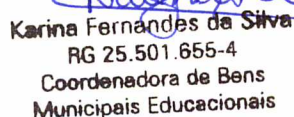 Karina Fernandes da Silva
RG 25.501.655-4
Coordenadora de Bens
Municipais Educacionais